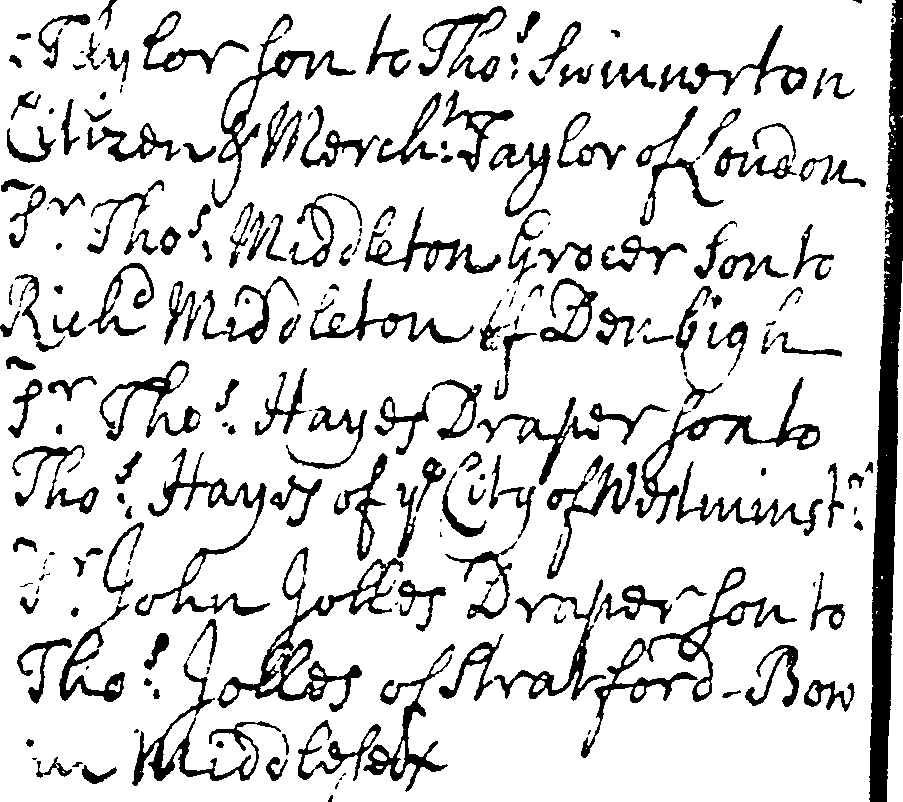 : Taylor son to Thos. Swinnerton
Citizen & Mercht. Taylor of London
Sr. Thos. Middleton Grocer Son to
Richd Middleton of Denbigh
Sr. Thos. Hayes Draper son to
Thos. Hayes of ye City of Westminstr.
Sr. John Jolles Draper son to
Thos. Jolles of Stratford-Bow
in Middlesex